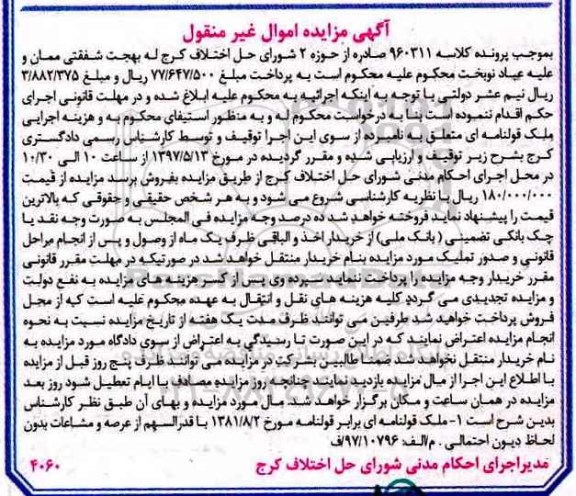 آگهی مزایده اموال غیر منقول
بموجب پرونده کلاسه ۹۶۰۳۱۱ صادره از حوزه ۲ شورای حل اختلاف کرج له بهجت شفقتی ممان و
علیه عباد نوبخت محکوم علیه محکوم است به پرداخت مبلغ ۷۷/۶۴۷/۵۰۰ ریال و مبلغ ۳/۸۸۲/۳۷۵
ریال نیم عشر دولتی با توجه به اینکه اجرائیه به محکوم علیه ابلاغ شده و در مهلت قانونی اجرای
حکم اقدام ننموده است بنا به درخواست محکوم له و به منظور استیفای محکوم به و هزینه اجرایی
ملک قولنامه ای متعلق به نامبرده از سوی این اجرا توقیف و توسط کارشناس رسمی دادگستری
کرج بشرح زیر توقیف و ارزیابی شده و مقرر گردیده در مورخ ۱۳۹۷/۵/۱۳ از ساعت ۱۰ الی ۱۰/۳۰
در محل اجرای احکام مدنی شورای حل اختلاف کرج از طریق مزایده بفروش برسد مزایده از قیمت
۱۸۰/۰۰۰/۰۰۰ ریال با نظریه کارشناسی شروع می شود و به هر شخص حقیقی و حقوقی که بالاترین
قیمت را پیشنهاد نماید فروخته خواهد شد ده درصد وجه مزایده فی المجلس به صورت وجه نقد یا
چک بانکی تضمینی (بانک ملی) از خریدار اخذ و الباقی ظرف یک ماه از وصول و پس از انجام مراحل
قانونی و صدور تملیک مورد مزایده بنام خریدار منتقل خواهد شد در صورتیکه در مهلت مقرر قانونی
مقرر خریدار وجه مزایده را پرداخت ننماید سپرده وی پس از کسر هزینه های مزایده به نفع دولت
و مزایده تجدیدی می گردد کلیه هزینه های نقل و انتقال به عهده محکوم علیه است که از محل
فروش پرداخت خواهد شد طرفین می توانند ظرف مدت یک هفته از تاریخ مزایده نسبت به نحوه
انجام مزایده اعتراض نمایند که در این صورت تا رسیدگی به اعتراض از سوی دادگاه مورد مزایده به
نام خریدار منتقل نخواهد شد ضمنا طالبین بشرکت در مزایده می توانند ظرف پنج روز قبل از مزایده
با اطلاع این اجرا از مال مزایده بازدید نمایند چنانچه روز مزایده مصادف با ایام تعطیل شود روز بعد
مزایده در همان ساعت و مکان برگزار خواهد شد مال مورد مزایده و بهای آن طبق نظر کارشناس
بدین شرح است ۱- ملک قولنامه ای برابر قولنامه مورخ ۱۳۸۱/۸/۲ با قدرالسهم از عرصه و مشاعات بدون
لحاظ دیون احتمالی . م/الف: ۹۷/۱۰۷۹۶/ف
مدیراجرای احکام مدنی شورای حل اختلاف کرج ۴۰۶۰